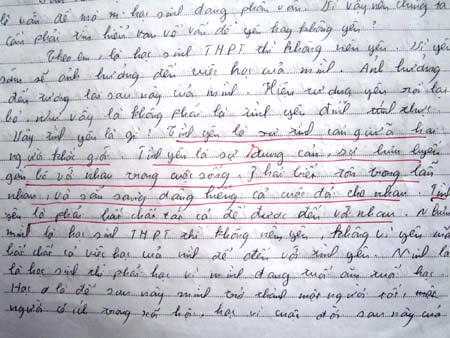 là vấn đề mà mỗi học sinh đang phân vân. Vì vậy nên chúng ta
cần phải tìm hiểu vấn đề yêu hay không yêu?
Theo em, là học sinh THPT thì không nên yêu. Vì yêu
sớm sẽ ảnh hưởng đến việc học của mình. Ảnh hưởng
đến tương lai sau này của mình. Hiện tượng yêu rồi lại
bỏ, như vậy là không phải là tình yêu đích thực
Vậy tình yêu là gì? Tình yêu là sự tình cảm giữa hai
người khác giới. Tình yêu là sự dung cảm, sự lưu luyến
gắn bó với nhau trong cuộc sống, 2 trái tim
nhau, và sẵn sàng dâng hiến cả cuộc đời cho nhau. Tình
yêu là phải bất chấp tất cả để được đến với nhau. Nhưng
mình là học sinh THPT thì không nên yêu, không vì yêu mà
bất chấp cả việc học của mình để đến với tình yêu. Mình là
là học sinh thì phải học vì mình đang tuổi ăn tuổi học.
Học là để sau này mình trở thành một người tốt, một
người có ích trong xã hội, học vì cuộc đời sau này của